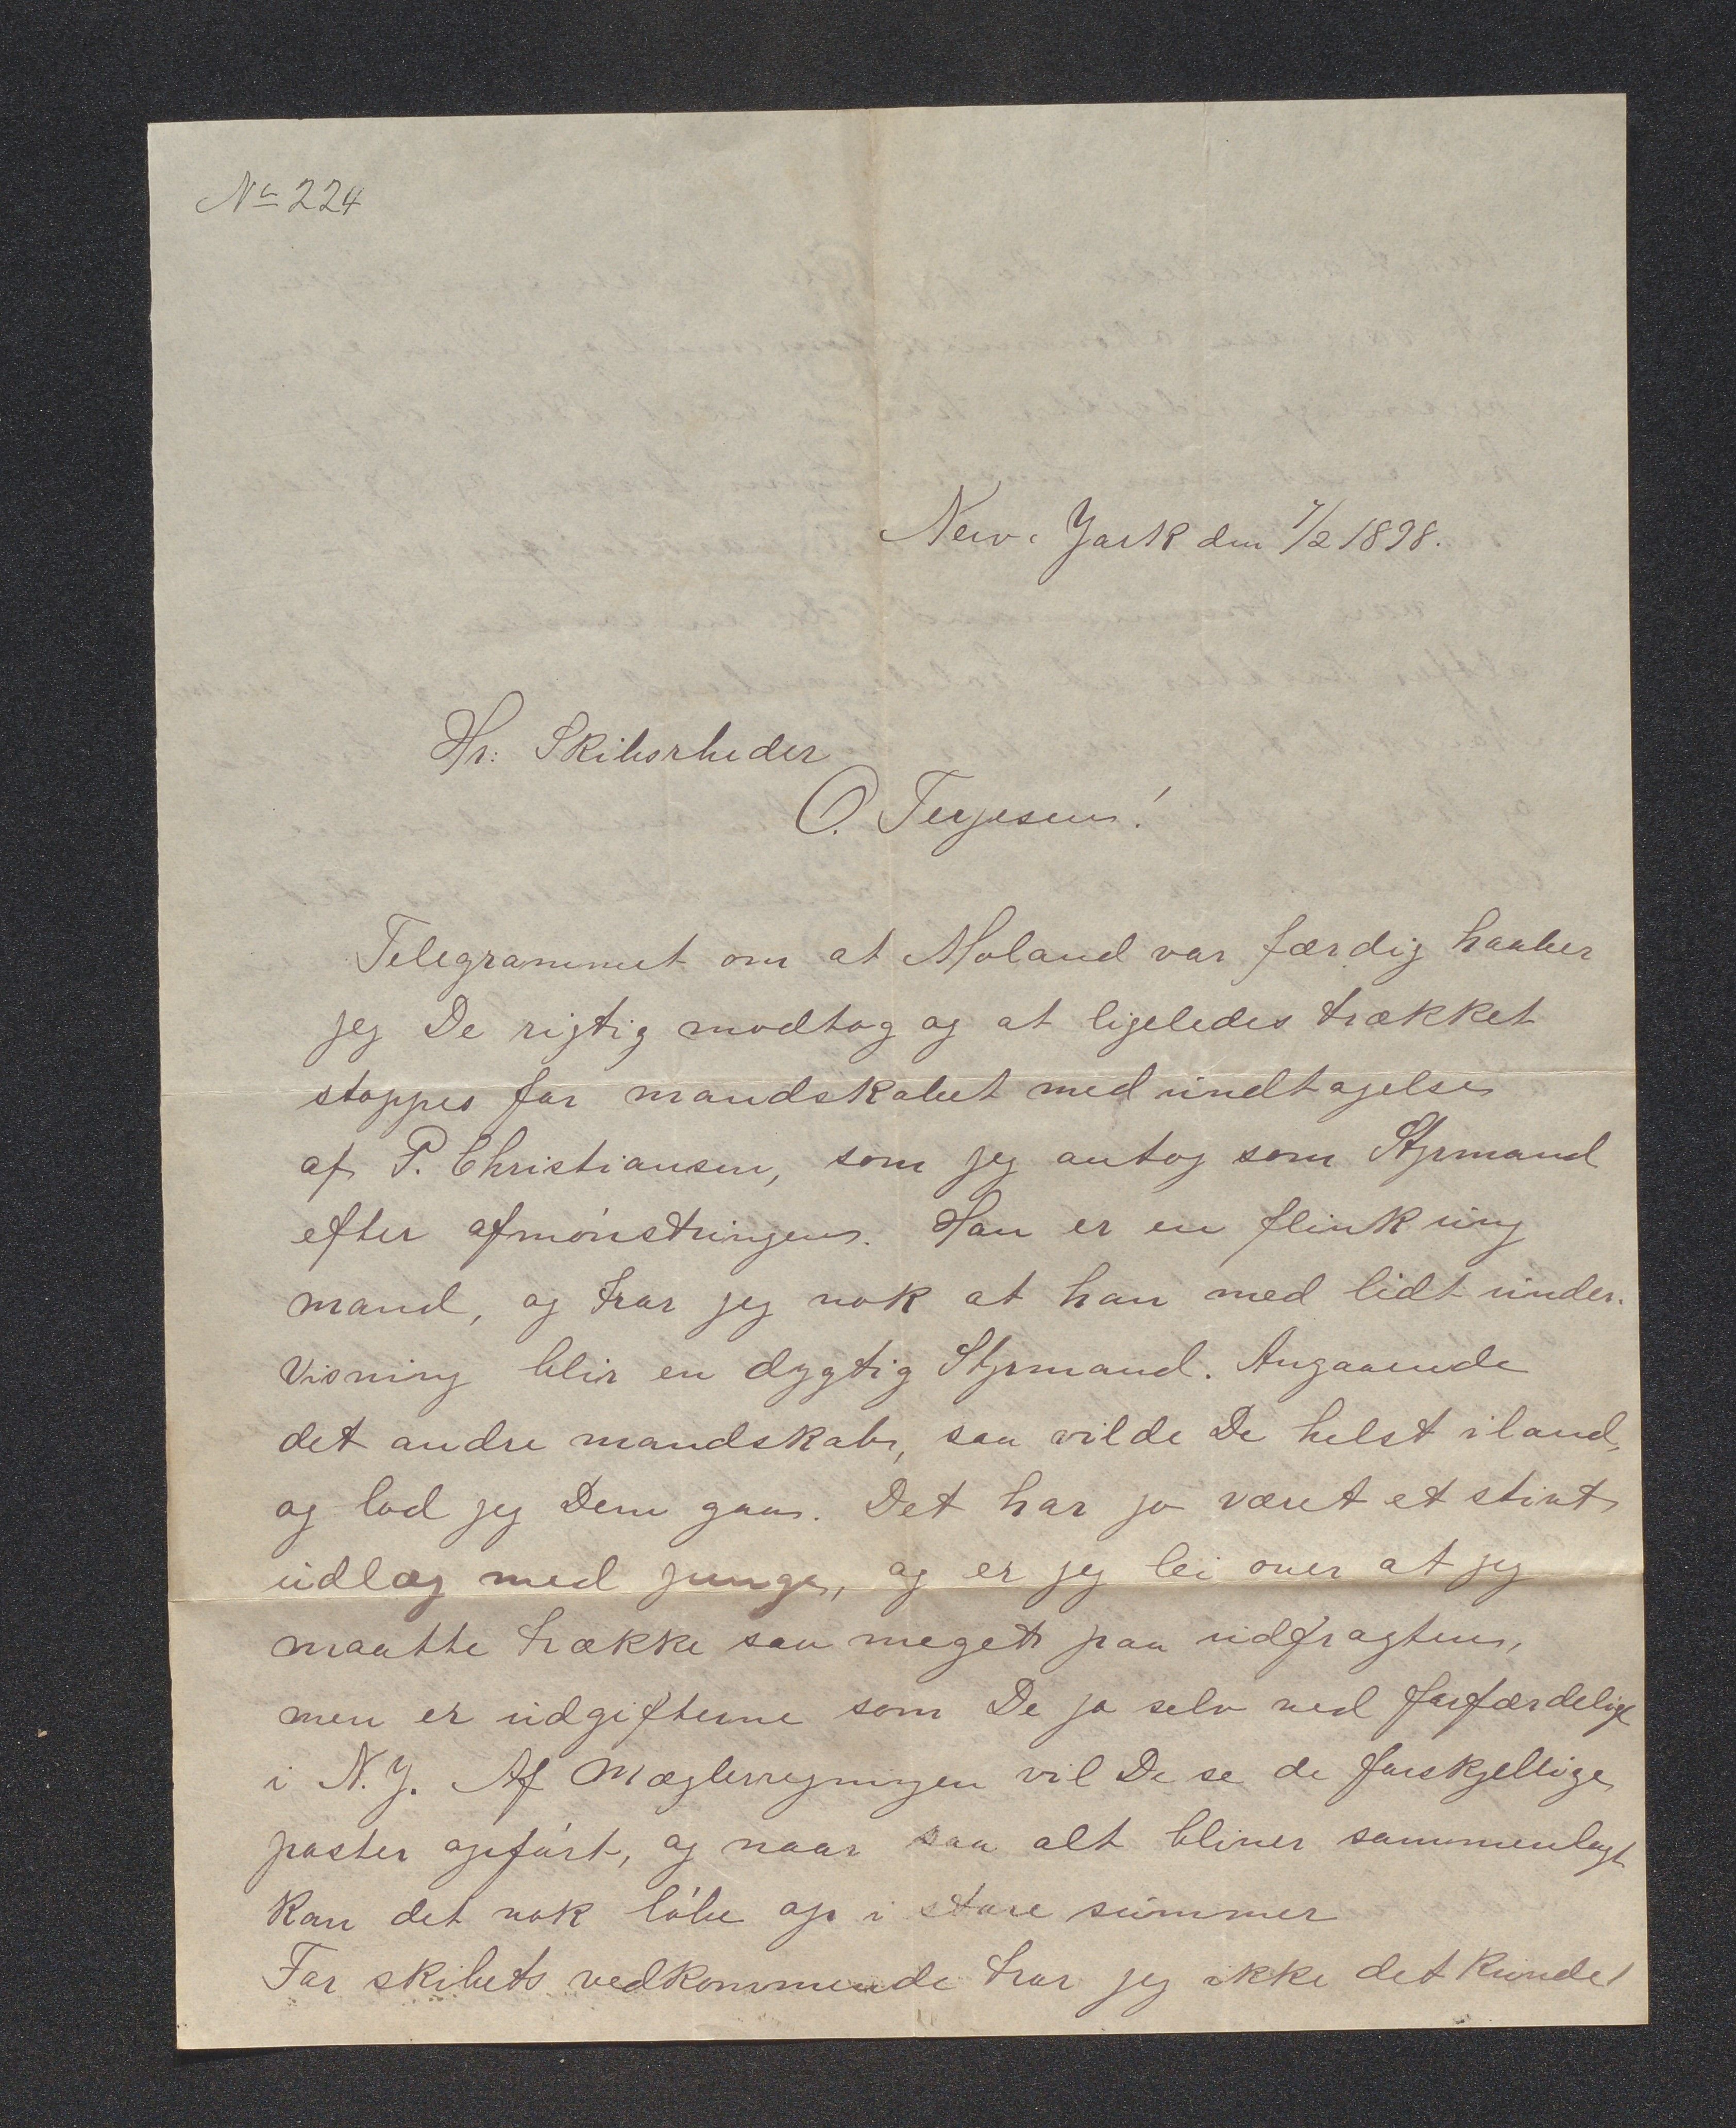 No 224
New-York den 7/2 1898.
Hr: Skibsrheder
O. Terjesen!
Telegrammet om at Moland var færdig haaber
jeg De rigtig modtog og at ligeledes trækket
stoppes for mandskabet med undtagelse
af P. Christiansen, som jeg antog som Styrmand
efter afmønstringen. Han er en flink ung
mand, og tror jeg nok at han med lidt under-
visning blir en dygtig Styrmand. Angaaende
det andre mandskab, saa vilde De helst iland,
og lod jeg Dem gaa. Det har jo været et stint
udlæg med penge, og er jeg lei over at jeg
maatte trække saa meget paa udfragten,
men er udgifterne som De jo selv ved forfærdelige
i N.Y. Af Mæglerregningen vil De se de forskjellige
poster opført, og naar saa alt bliver sammenlagt
kan det nok løbe op i store summer
For skibets vedkommende tror jeg ikke det kunde